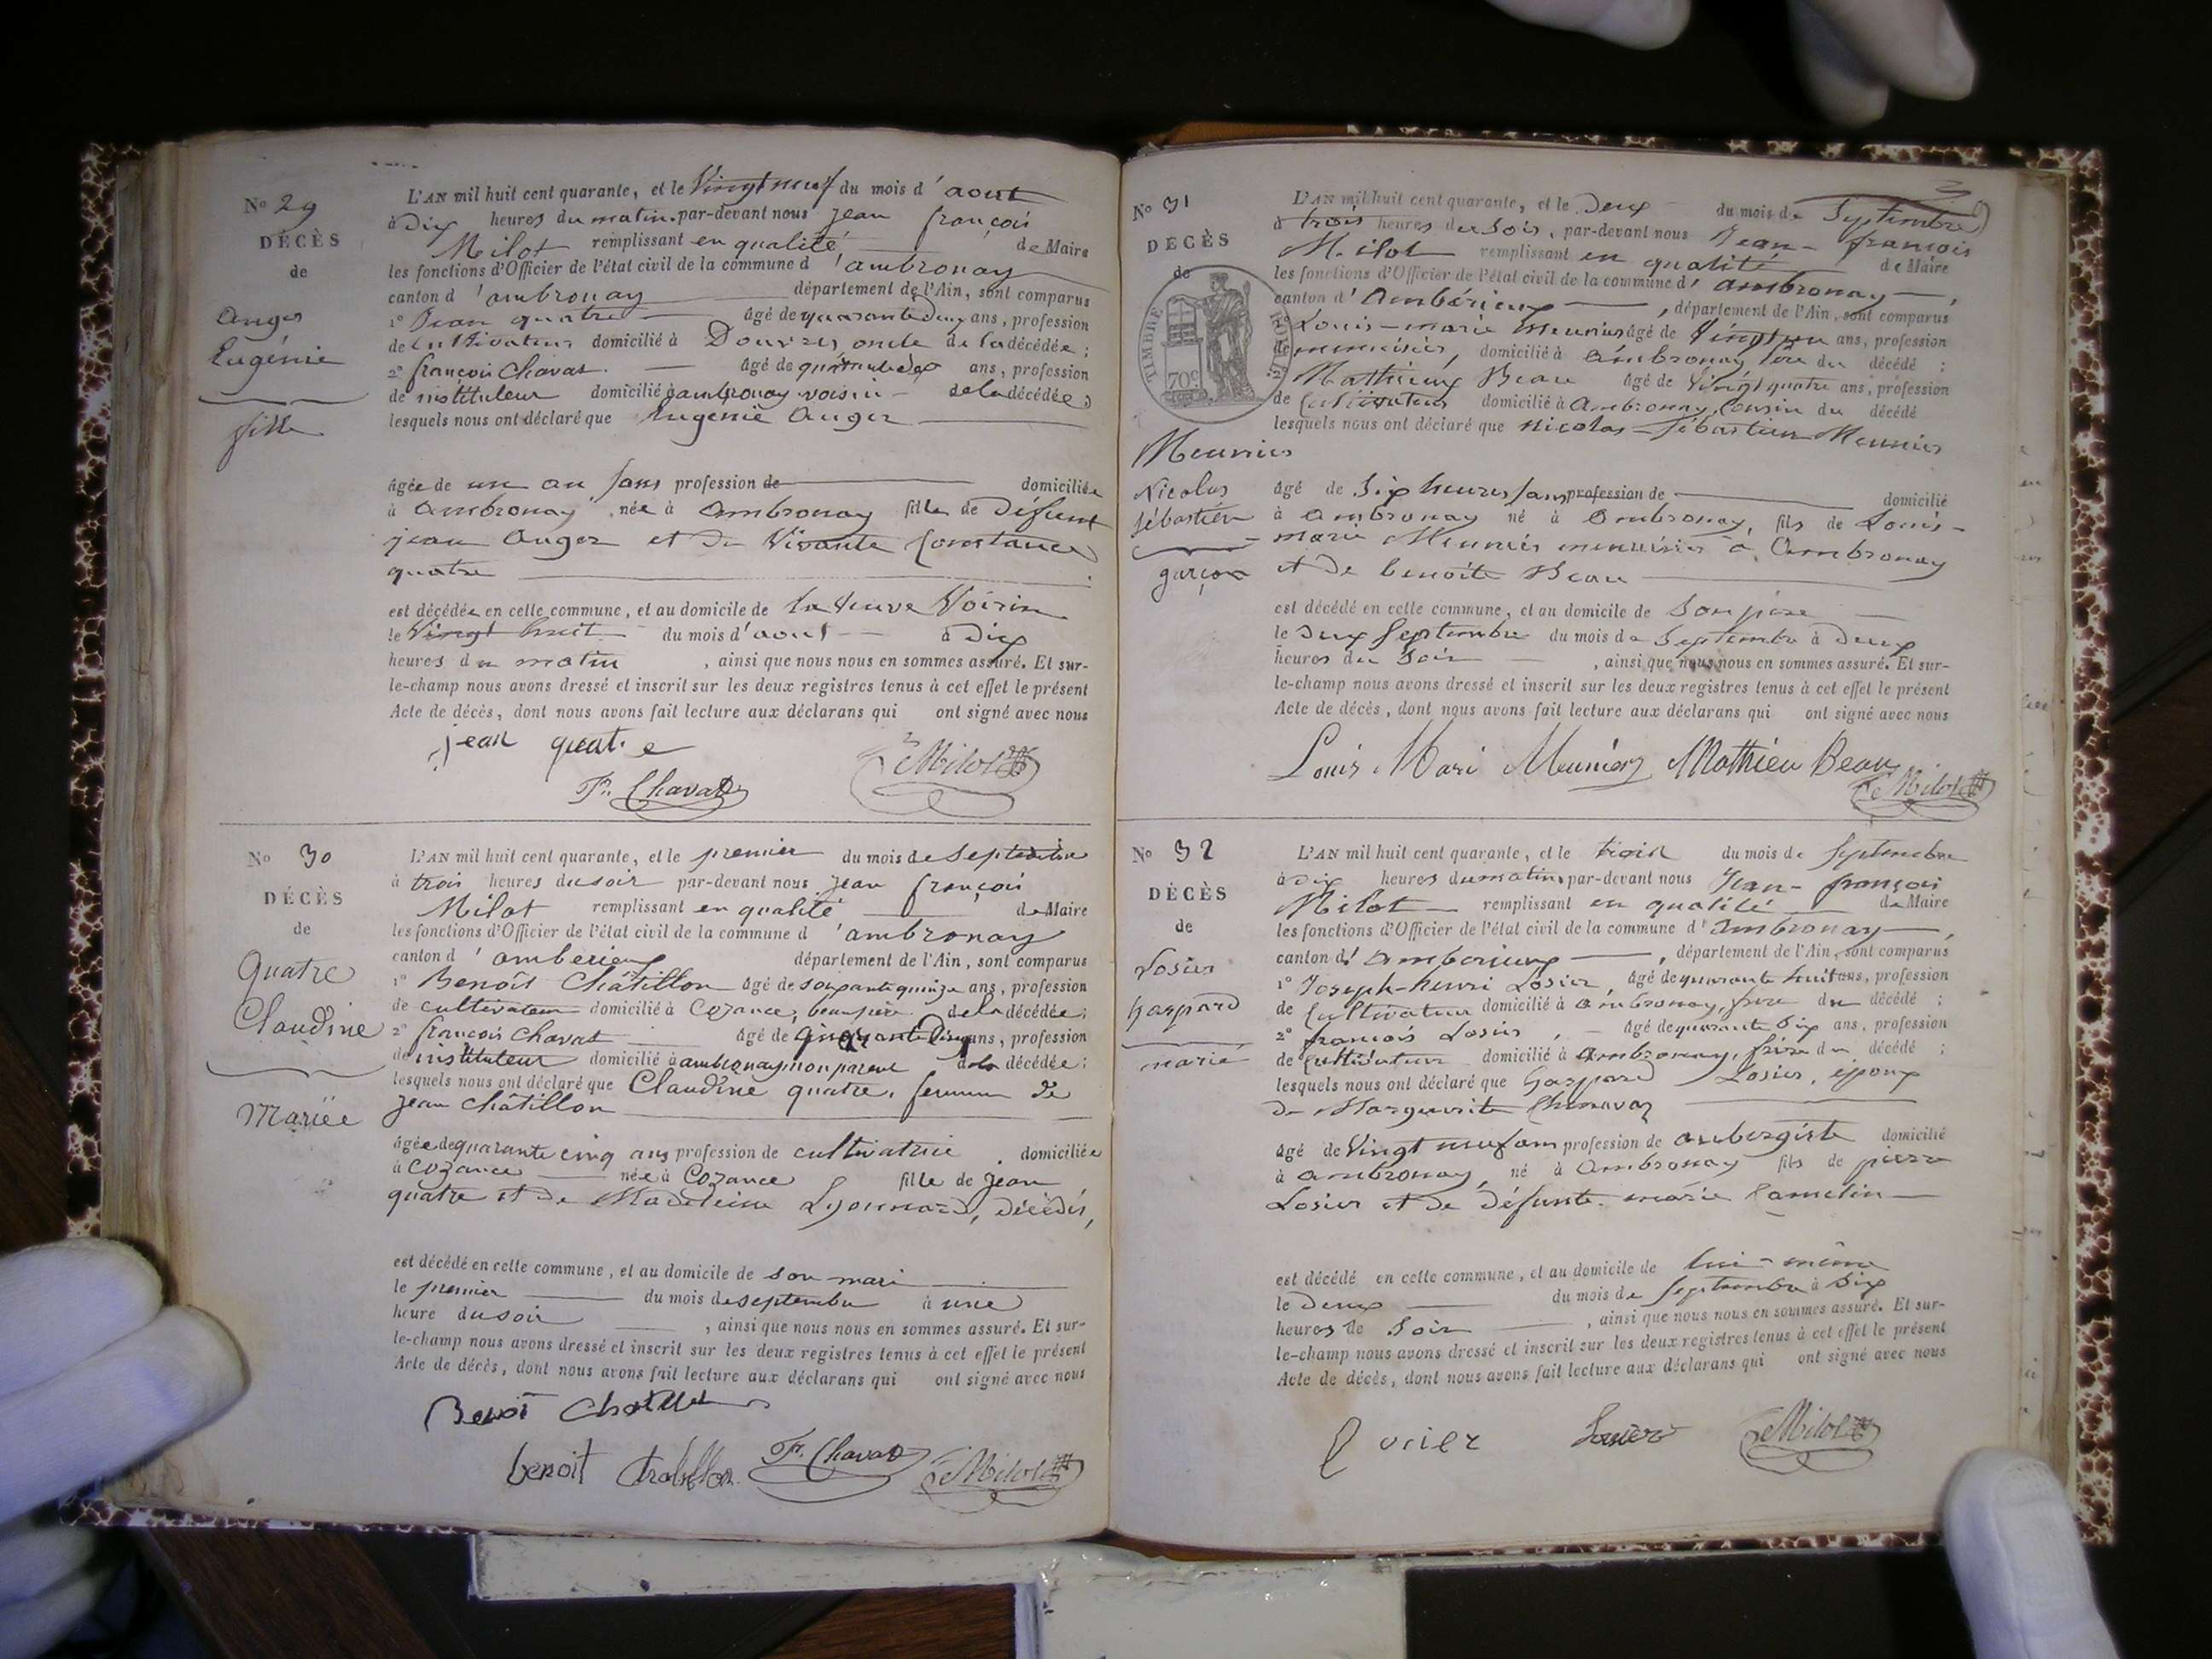 N° 29
DÉCÈS
de
Anger
Eugénie
fille
L'AN mil huit cent quarante, et le Vingt neuf du mois d'aout
à Dix heures du matin par-devant nous jean françois
Milot remplissant en qualité de Maire
les fonctions d'Officier de l'état civil de la commune d'ambronay
canton d'ambronay département de l'Ain, sont comparus
1° Jean quatre âgé de quarante deux ans, profession
de cultivateur domicilié à Douvres, oncle de la décédée ;
2° françois Chavat. âgé de ans, profession
de instituteur domicilié à ambronay voisin de la décédée ;
lesquels nous ont déclaré que Eugénie Anger
âgée de un an sans profession de domiciliée
à Ambronay née à Ambronay fille de Défunt
jean Anger et de Vivante Constance
quatre
est décédée en cette commune, et au domicile de la Veuve Voirin
le Vingt huit du mois d'aout à Dix
heures du matin , ainsi que nous nous en sommes assuré. Et sur-
le-champ nous avons dressé et inscrit sur les deux registres tenus à cet effet le présent
Acte de décès, dont nous avons fait lecture aux déclarans qui ont signé avec nous
jean quatre
Fr. Chavat Milot
N° 30
DÉCÈS
de
Quatre
Claudine
Mariée
L'AN mil huit cent quarante, et le premier du mois de septembre
à trois heures du soir par-devant nous jean françois
Milot remplissant en qualité de Maire
les fonctions d'Officier de l'état civil de la commune d'ambronay
canton d'amberieux département de l'Ain, sont comparus
1° Benoît Châtillon âgé de soixante quinze ans, profession
de cultivateur domicilié à Cozance, beau père de la décédée ;
2° françois Chavat âgé de cinquante cinq ans, profession
de instituteur domicilié à ambronay non parent de la décédée ;
lesquels nous ont déclaré que Claudine quatre, femme de
jean Châtillon
âgée de quarante cinq ans profession de cultivatrice domiciliée
à Cozance née à Cozance fille de jean
quatre et de Madeleine Lyonnard, décédés,
est décédé en cette commune, et au domicile de son mari
le premier du mois de septembre à une
heure du soir , ainsi que nous nous en sommes assuré. Et sur-
le-champ nous avons dressé et inscrit sur les deux registres tenus à cet effet le présent
Acte de décès, dont nous avons fait lecture aux déclarans qui ont signé avec nous
Benoi
benoit Fr. Chavat Milot
N° 31
DÉCÈS
de
TIMBRE ROYAL
70c
Meunier
Nicolas
Sébastien
garçon
L'AN mil huit cent quarante, et le Deux du mois de Septembre
à trois heures du Soir, par-devant nous Jean-françois
Milot remplissant en qualité de Maire
les fonctions d'Officier de l'état civil de la commune d'ambronay,
canton d'Ambérieux, département de l'Ain, sont comparus
1° Louis-marie Meunier âgé de Vingt un ans, profession
de menuisier, domicilié à ambronay, père du décédé ;
2° Mathieux Beau âgé de Vingt quatre ans, profession
de Cultivateur domicilié à Ambronay, Cousin du décédé
lesquels nous ont déclaré que Nicolas-Sébastien Meunier
âgé de Six heures sans profession de domicilié
à ambronay né à Ambronay, fils de Louis-
marie Meunier menuisier à Ambronay
et de benoite Beau
est décédé en cette commune, et au domicile de Son père
le Deux Septembre du mois de Septembre à Deux
heures du Soir , ainsi que nous nous en sommes assuré. Et sur-
le-champ nous avons dressé et inscrit sur les deux registres tenus à cet effet le présent
Acte de décès, dont nous avons fait lecture aux déclarans qui ont signé avec nous
Louis Mari Meunier Mathieu Beau
Milot
N° 32
DÉCÈS
de
Losier
Gaspard
marié
L'AN mil huit cent quarante, et le trois du mois de Septembre
à Dix heures du matin par-devant nous Jean-françois
Milot remplissant en qualité de Maire
les fonctions d'Officier de l'état civil de la commune d'Ambronay,
canton d'Amberieux, département de l'Ain, sont comparus
1° Joseph-henri Losier, âgé de quarante huit ans, profession
de Cultivateur domicilié à ambronay, frère du décédé ;
2° françois Losier, âgé de quarante Six ans, profession
de Cultivateur domicilié à Ambronay, frère du décédé ;
lesquels nous ont déclaré que Gaspard Losier, époux
de Marguerite Chenavaz
âgé de Vingt neuf ans profession de aubergiste domicilié
à ambronay, né à Ambronay fils de pierre
Losier et de défunte marie
est décédé en cette commune, et au domicile de lui-même
le Deux du mois de Septembre à Six
heures de Soir , ainsi que nous nous en sommes assuré. Et sur-
le-champ nous avons dressé et inscrit sur les deux registres tenus à cet effet le présent
Acte de décès, dont nous avons fait lecture aux déclarans qui ont signé avec nous
Milot